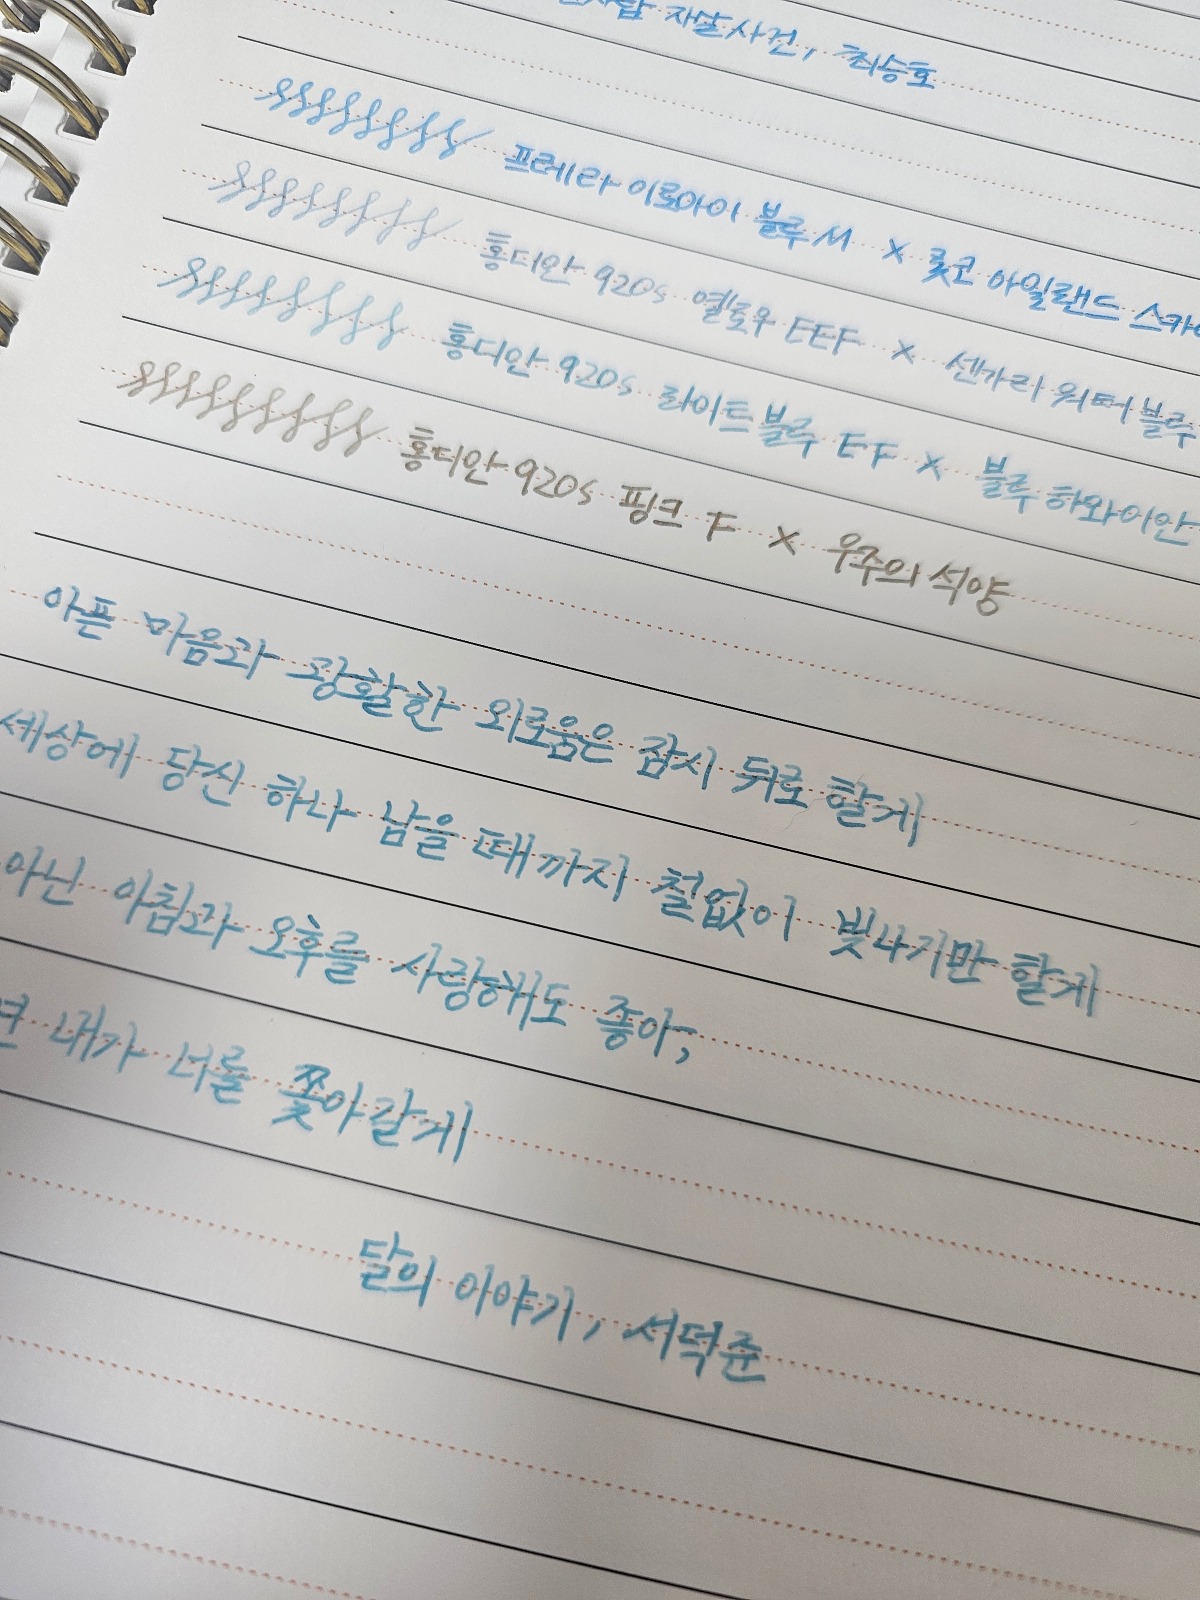 자살사건, 최승호
프레라 이로아이 블루 M × 룻코 아일랜드 스카
홍디안 920s 옐로우 EEF × 센가리 워터 블루
홍디안 920s 라이트블루 EF × 블루 하와이안
홍디안 920s 핑크 F × 우주의 석양
아픈 마음과 광활한 외로움은 잠시 뒤로 할게
세상에 당신 하나 남을 때까지 철없이 빛나기만 할게
아닌 아침과 오후를 사랑해도 좋아,
내가 너를 쫓아갈게
달의 이야기, 서덕준